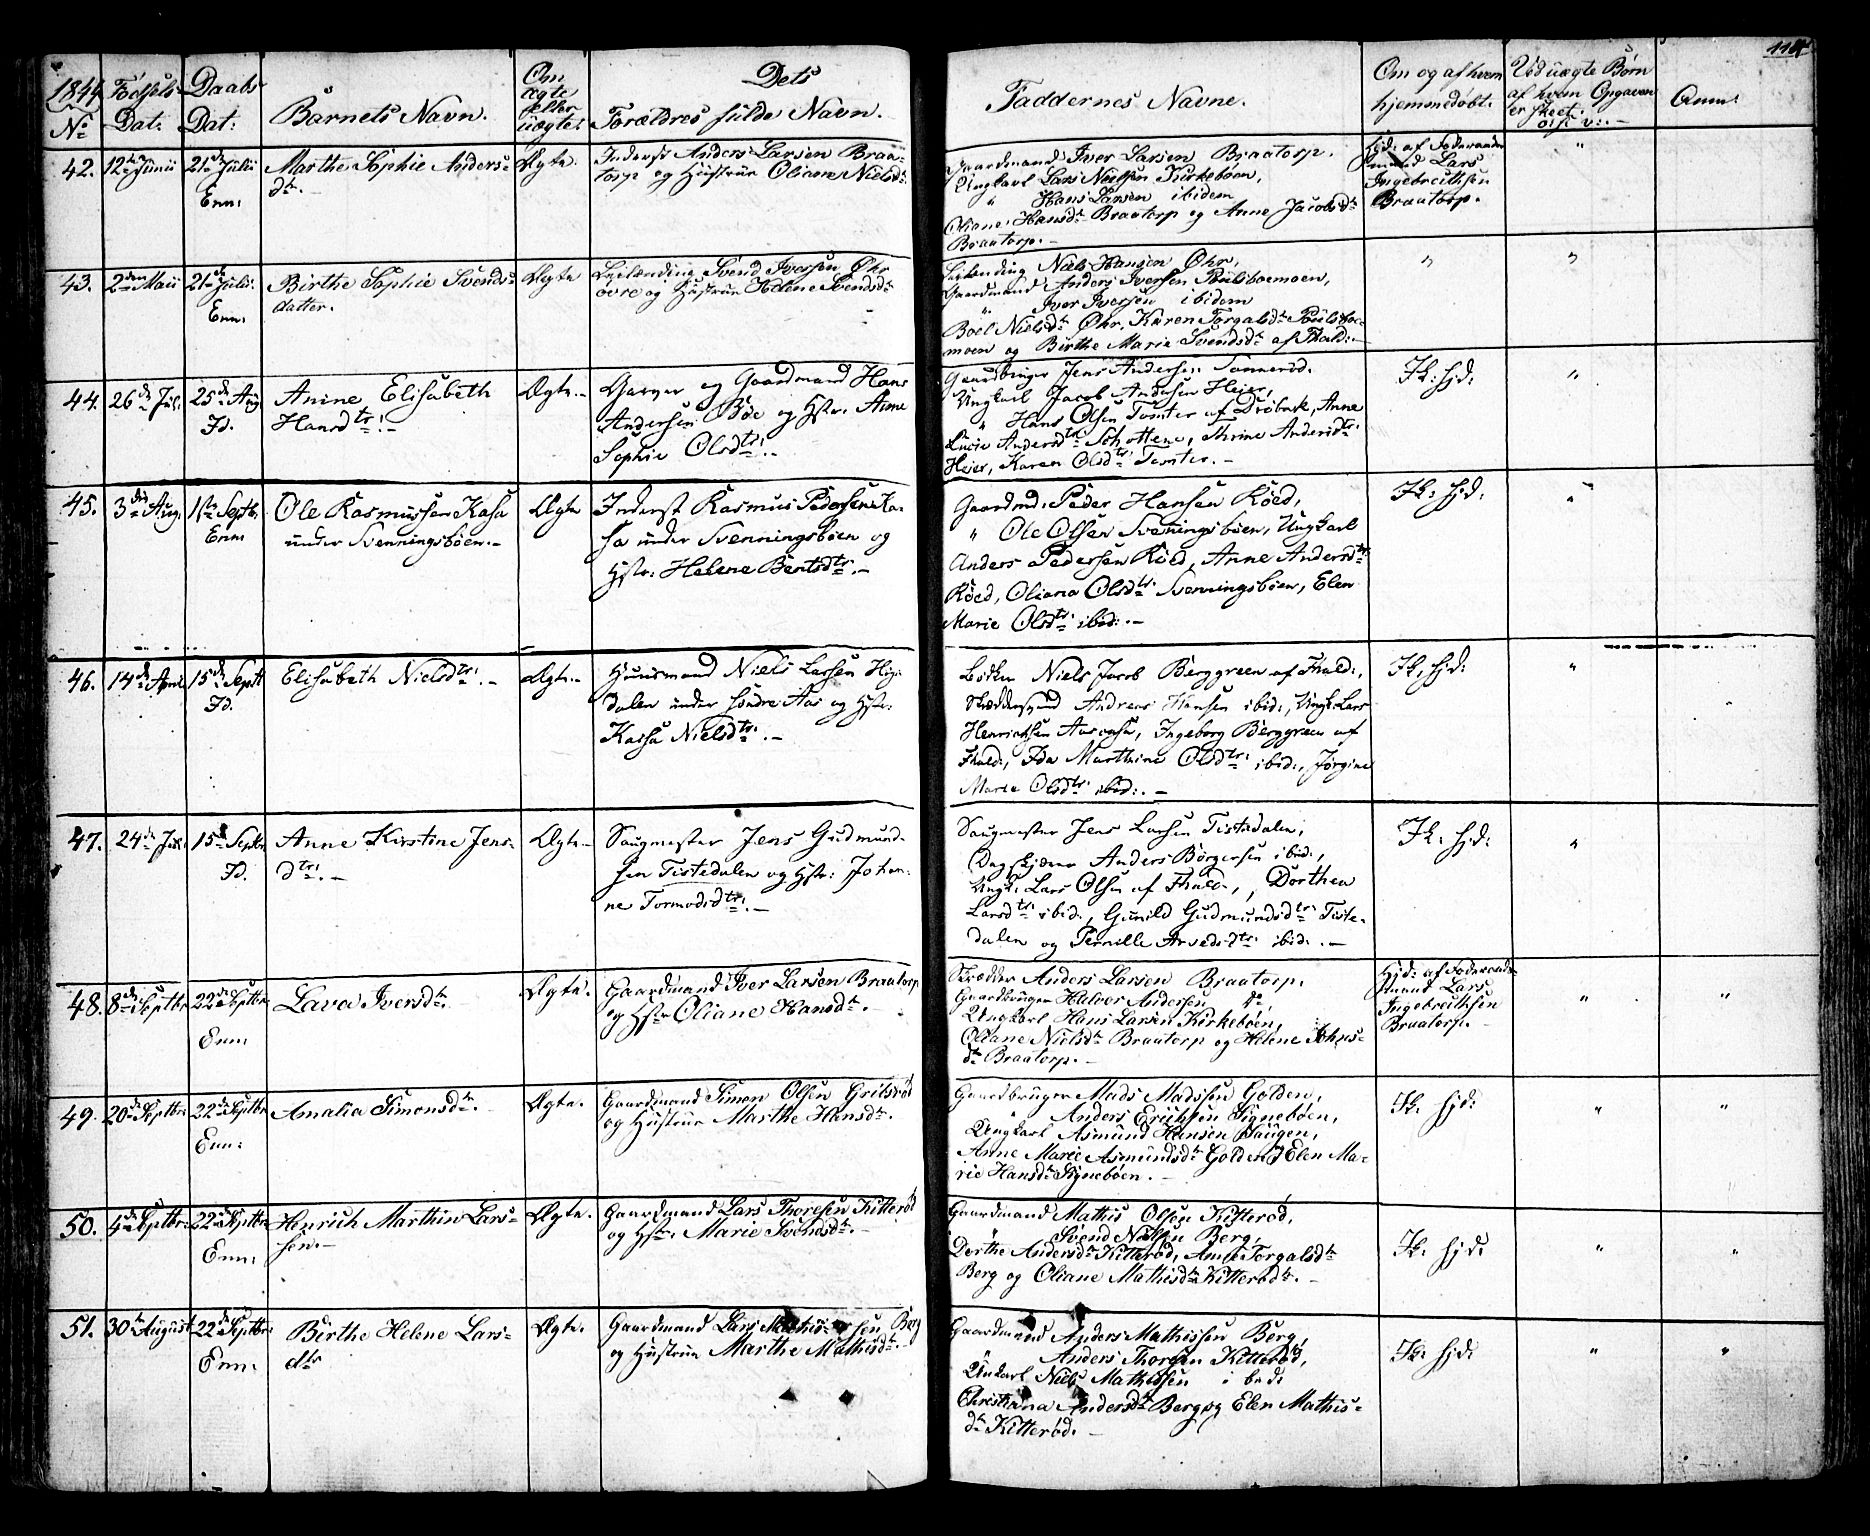 114
1844
No
Fødsels
Dat:
Daabs
Dat:
Barnets Navn.
Om
ægte
eller
uægte:
Dets
Forældres fulde Navn.
Faddernes Navne.
Om og af hvem
hjemmedøbt.
Ved uægte Børn
af hvem Opgaven
er skeet
Anm:
42. 12te Junii 21de Julii Marthe Sophie Anders- Ægte. Inderst Anders Larsen Braa-
Enn: dtr. torp og Hustrue Oliane Nielsdtr.
Gaardmand Iver Larsen Braatorp.
Ungkarl Lars Nielsen Kirkebøen,
" Hans Larsen ibidem
Oliane Hansdtr Braatorp og Anne Jacobsdtr
Braatorp.-
Hjd: af Foderaads-
mand Lars
Ingebrethsen
Braatorp.
"
43. 2den Maii 21de Julii. Birthe Sophie Svends- Ægte Leilænding Svend Iversen Øhr
Enn: datter. øvre og Hustrue Helene Svendsdtr
Leilending Niels Hansen Øhr,
Gaardmand Anders Iversen Poulsboemoen,
" Iver Iversen ibidem
Boel Nielsdtr Øhr, Karen Torgalsdtr Poulsboe-
moen og Birthe Marie Svendsdtr af Fhald:-
" "
44. 26de Jul: 25de Aug Anine Elisabeth Ægte.- Garver og Gaardmand Hans
Id. Hansdtr:- Andersen Bøe og Hstr: Anne
Sophie Olsdtr:.-
Gaardbruger Jens Andersen Sonnerød.
Ungkarl Jacob Andersen Heier,
" Hans Olsen Tomter af Drøbak, Anne
Lucie Andersdtr Schottene, Thrine Andersdtr:
Heier, Karen Olsdtr: Tomter.-
Ik: hjd: "
45. 3die Aug. 1ste Septbr. Ole Rasmussen Kasa Ægte Inderst Rasmus Pedersen Ka-
Enn: under Svenningsbøen.- sa under Svenningsbøen og
Hstr: Helene Berntsdtr:.-
Gaardmd: Peder Hansen Röed,
" Ole Olsen Svenningsbøen, Ungkarl
Anders Pedersen Röed, Anne Andersdtr:
Röed, Oliana Olsdtr: Svenningsbøen, Elen
Marie Olsdtr: ibid:.-
Ik: hjd: "
46. 14de April 15de Septb Elisabeth Nielsdtr:.- Ægte.- Huusmand Niels Larsen
Id. dalen under søndre Aas og Hstr:
Kaisa Nielsdtr:.-
Bødker Niels Jacob Berggreen af Fhald:,
Skræddersvend Andreas Hansen ibid:, Ungk: Lars
Henrichsen Aaseasa, Ingeborg Berggreen af
Fhald:, Ida Marthine Olsdtr: ibid:, Jørgine
Marie Olsdtr: ibid:.-
Ik: hjd: "
47. 24de Jul: 15de Septbr Anne Kirstine Jens- Ægte- Saugmester Jens Gudmund-
Id. dtr:.- sen Tistedalen og Hstr: Johan-
ne Tormodsdtr:.-
Saugmester Jens Larsen Tistedalen,
Dagskjærer Anders Börgersen ibid:,
Ungk: Lars Olsen af Fhald:, Dorthea
Larsdtr: ibid:, Gunild Gudmundsdtr: Tiste-
dalen og Pernille Arvedsdtr: ibid:.-
Ik: hjd: "
48. 8de Septbr 22de Septbr Lava Iversdtr. Ægte. Gaardmand Iver Larsen Braatorp
Enn: og Hstr Oliane Hansdtr.-
Skrædder Anders Larsen Braatorp.
Gaardbruger Halvor Andersen do,
Ungkarl Hans Larsen Kirkebøen,
Oliane Nielsdtr Braatorp og Helene Johns-
dtr Braatorp.-
Hjd: af Foderaads-
mand Lars
Ingebrethsen
Braatorp.
" "
49. 20de Septbr 22de Septbr Amalia Simonsdtr. Ægte. Gaardmand Simon Olsen Grilsrød
Enn: og Hustrue Marthe Hansdtr.
Gaardbruger Mads Madssen Golden,
" Anders Erichsen Signebøen,
Ungkarl Asmund Hansen Haugen,
Anne Marie Asmundsdtr Golden og Elen Ma-
rie Hansdtr Signebøen.-
Ik: hjd: " "
50. 4de Septbr: 22de Septbr Henrich Marthin Lars- Ægte. Gaardmand Lars Thoresen Kitterød
Enn: sen.- og Hstr: Marie Svendsdtr.-
Gaardmand Mathis Olsen Kitterød,
" Svend Nielsen Berg,
Dorthe Andersdtr Kitterød, Anne Torgalsdtr
Berg og Oliane Mathisdtr Kitterødtr.-
Ik: hjd: " "
51. 30te August 22de Septbr: Birthe Helene Lars- Ægte. Gaardmand Lars Mathissen Berg
Enn: dtr og Hustrue Marthe Mathisdtr.-
Gaardmand Anders Mathissen Berg,
" Anders Thoresen Kitterød,
Unkarl Niels Mathissen ibed:
Christiana Andersdtr Berg og Elen Mathis-
dtr Kitterød.-
Ik: hjd: " "